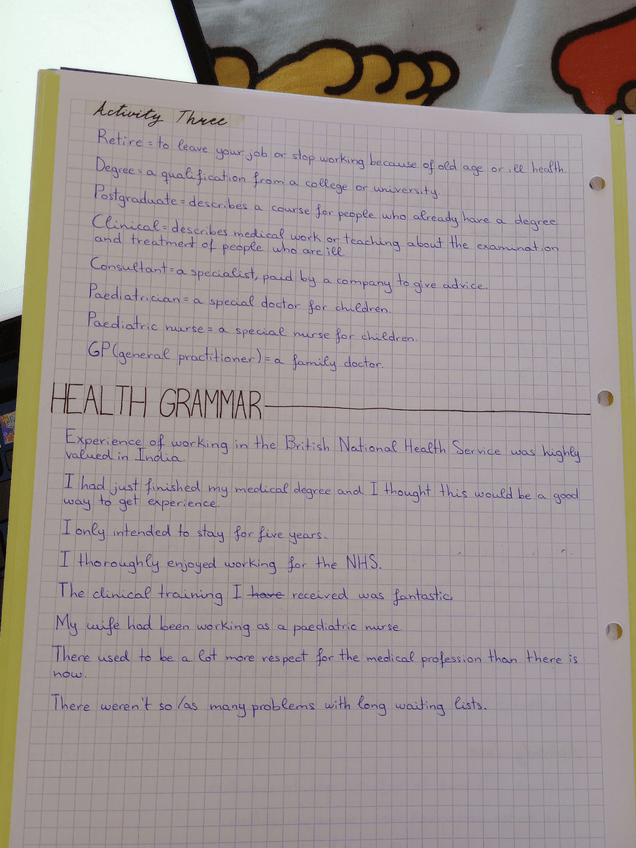 Activity Three
Retire = to leave your job or stop working because of old age or ill health.
Degree = a qualification from a college or university
Postgraduate = describes a course for people who already have a degree
Clinical = describes medical work or teaching about the examination
and treatment of people who are ill
Consultant = a specialist, paid by a company to give advice.
Paediatrician = a special doctor for children.
Paediatric nurse = a special nurse for children.
GP (general practitioner) = a family doctor.
HEALTH GRAMMAR
Experience of working in the British National Health Service was highly
valued in India
I had just finished my medical degree and I thought this would be a good
way to get experience.
I only intended to stay for five years.
I thoroughly enjoyed working for the NHS.
The clinical training I have received was fantastic
My wife had been working as a paediatric nurse
There used to be a lot more respect for the medical profession than there is
now.
There weren't so/as many problems with long waiting lists.